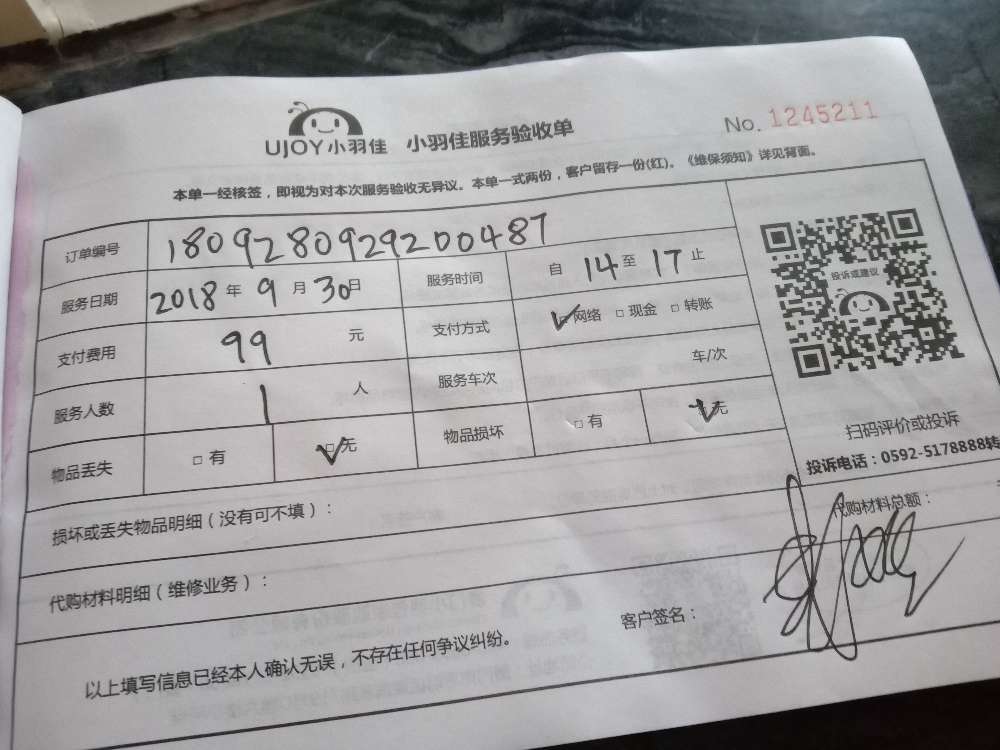 UJOY小羽佳 小羽佳服务验收单
No. 1245211
本单一经核签，即视为对本次服务验收无异议。本单一式两份，客户留存一份(红)。《维保须知》详见背面。
订单编号 1809280929200487
服务日期 2018 年 9 月 30 日 服务时间 自 14 至 17 止
支付费用 99 元 支付方式 网络 现金 转账
服务人数 1 人 服务车次 车/次
物品丢失 有 无 物品损坏 有 无
投诉或建议
扫码评价或投诉
投诉电话：0592-5178888转
损坏或丢失物品明细（没有可不填）：
代购材料明细（维修业务）： 代购材料总额：
以上填写信息已经本人确认无误，不存在任何争议纠纷。 客户签名：